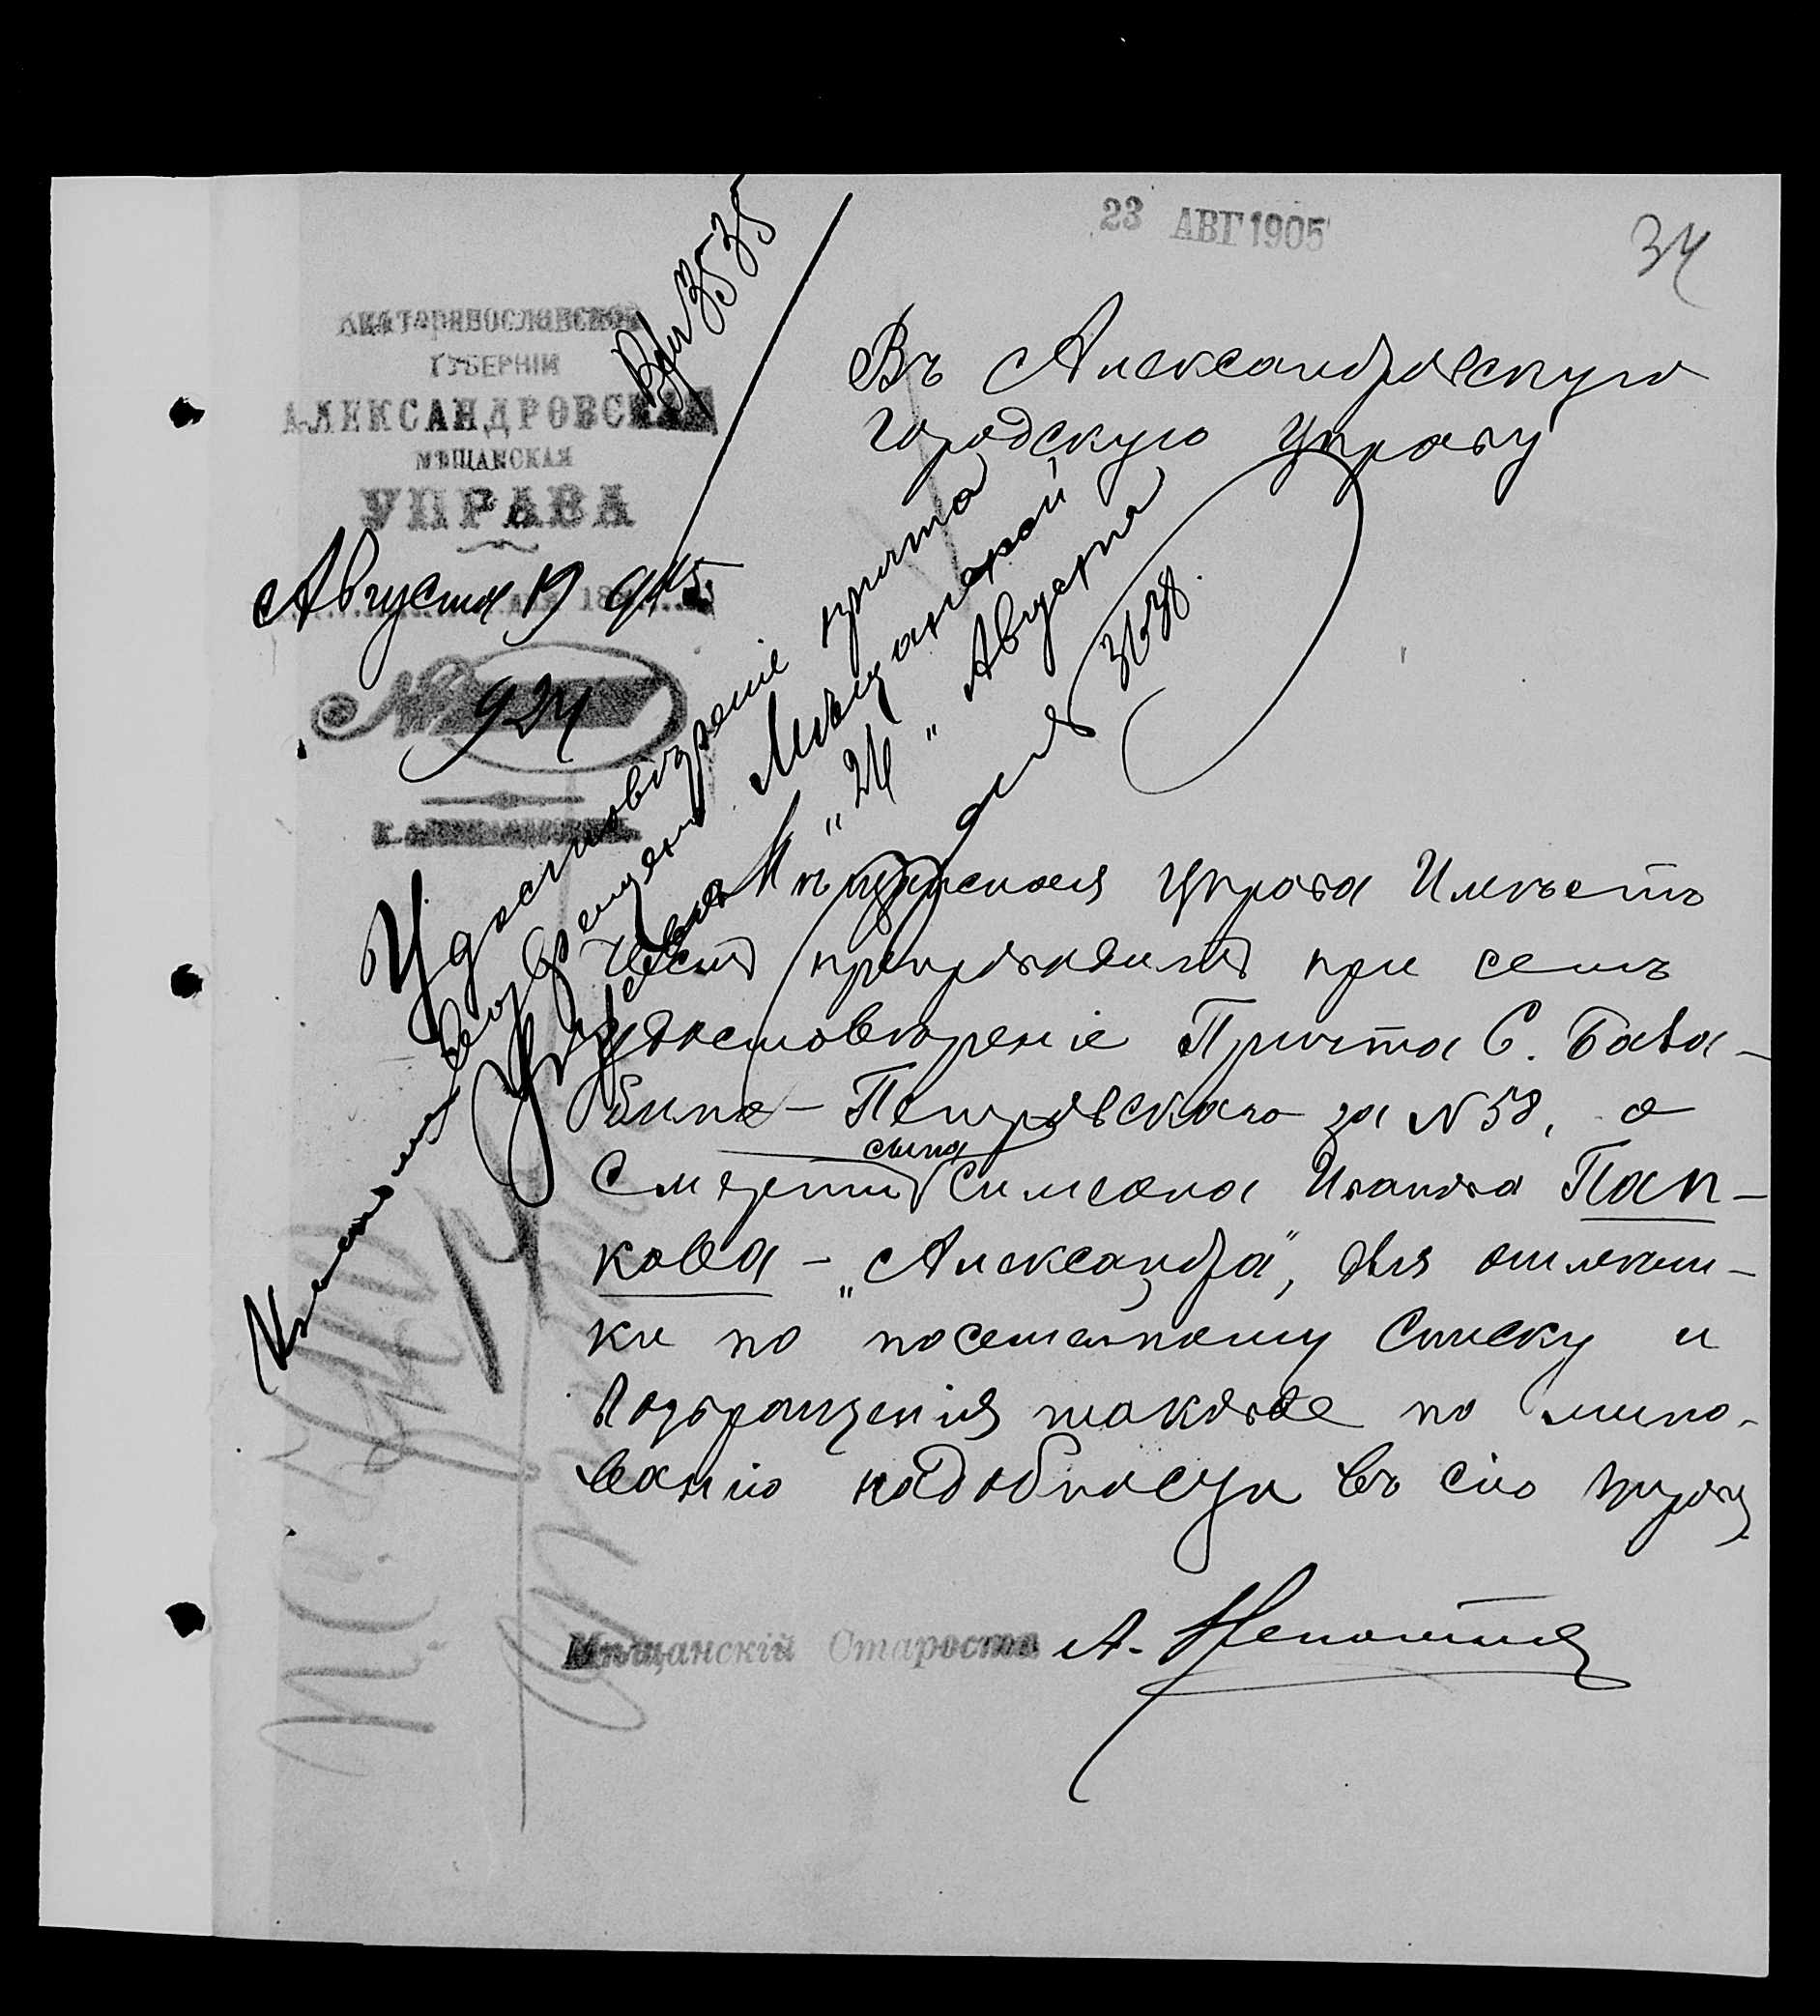 23 АВГ 1905
34
Вх 3535
ЕКАТЕРИНОСЛАВСКОЙ
ГУБЕРНІИ
АЛЕКСАНДРОВСКАЯ
МѢЩАНСКАЯ
УПРАВА
Августа 19 905
№ 924
Г. АЛЕКСАНДРОВСКЪ
Въ Александровскую
Городскую Управу
Удостовѣреніе причта
возвращено Мѣщанской
Управѣ „24“ Августа
за № 3158.
Мѣщанская Управа Имѣетъ
честь препроводить при семъ
удостовѣреніе Причта С. Бала-
бино-Петровскаго за N 58, о
Смерти сына Симеона Иванова Пап-
кова - „Александра“, для отмѣт-
ки по посемейному Списку и
возвращенія таковое по мино-
ванію надобности въ сію управу
Мѣщанскій Староста А.